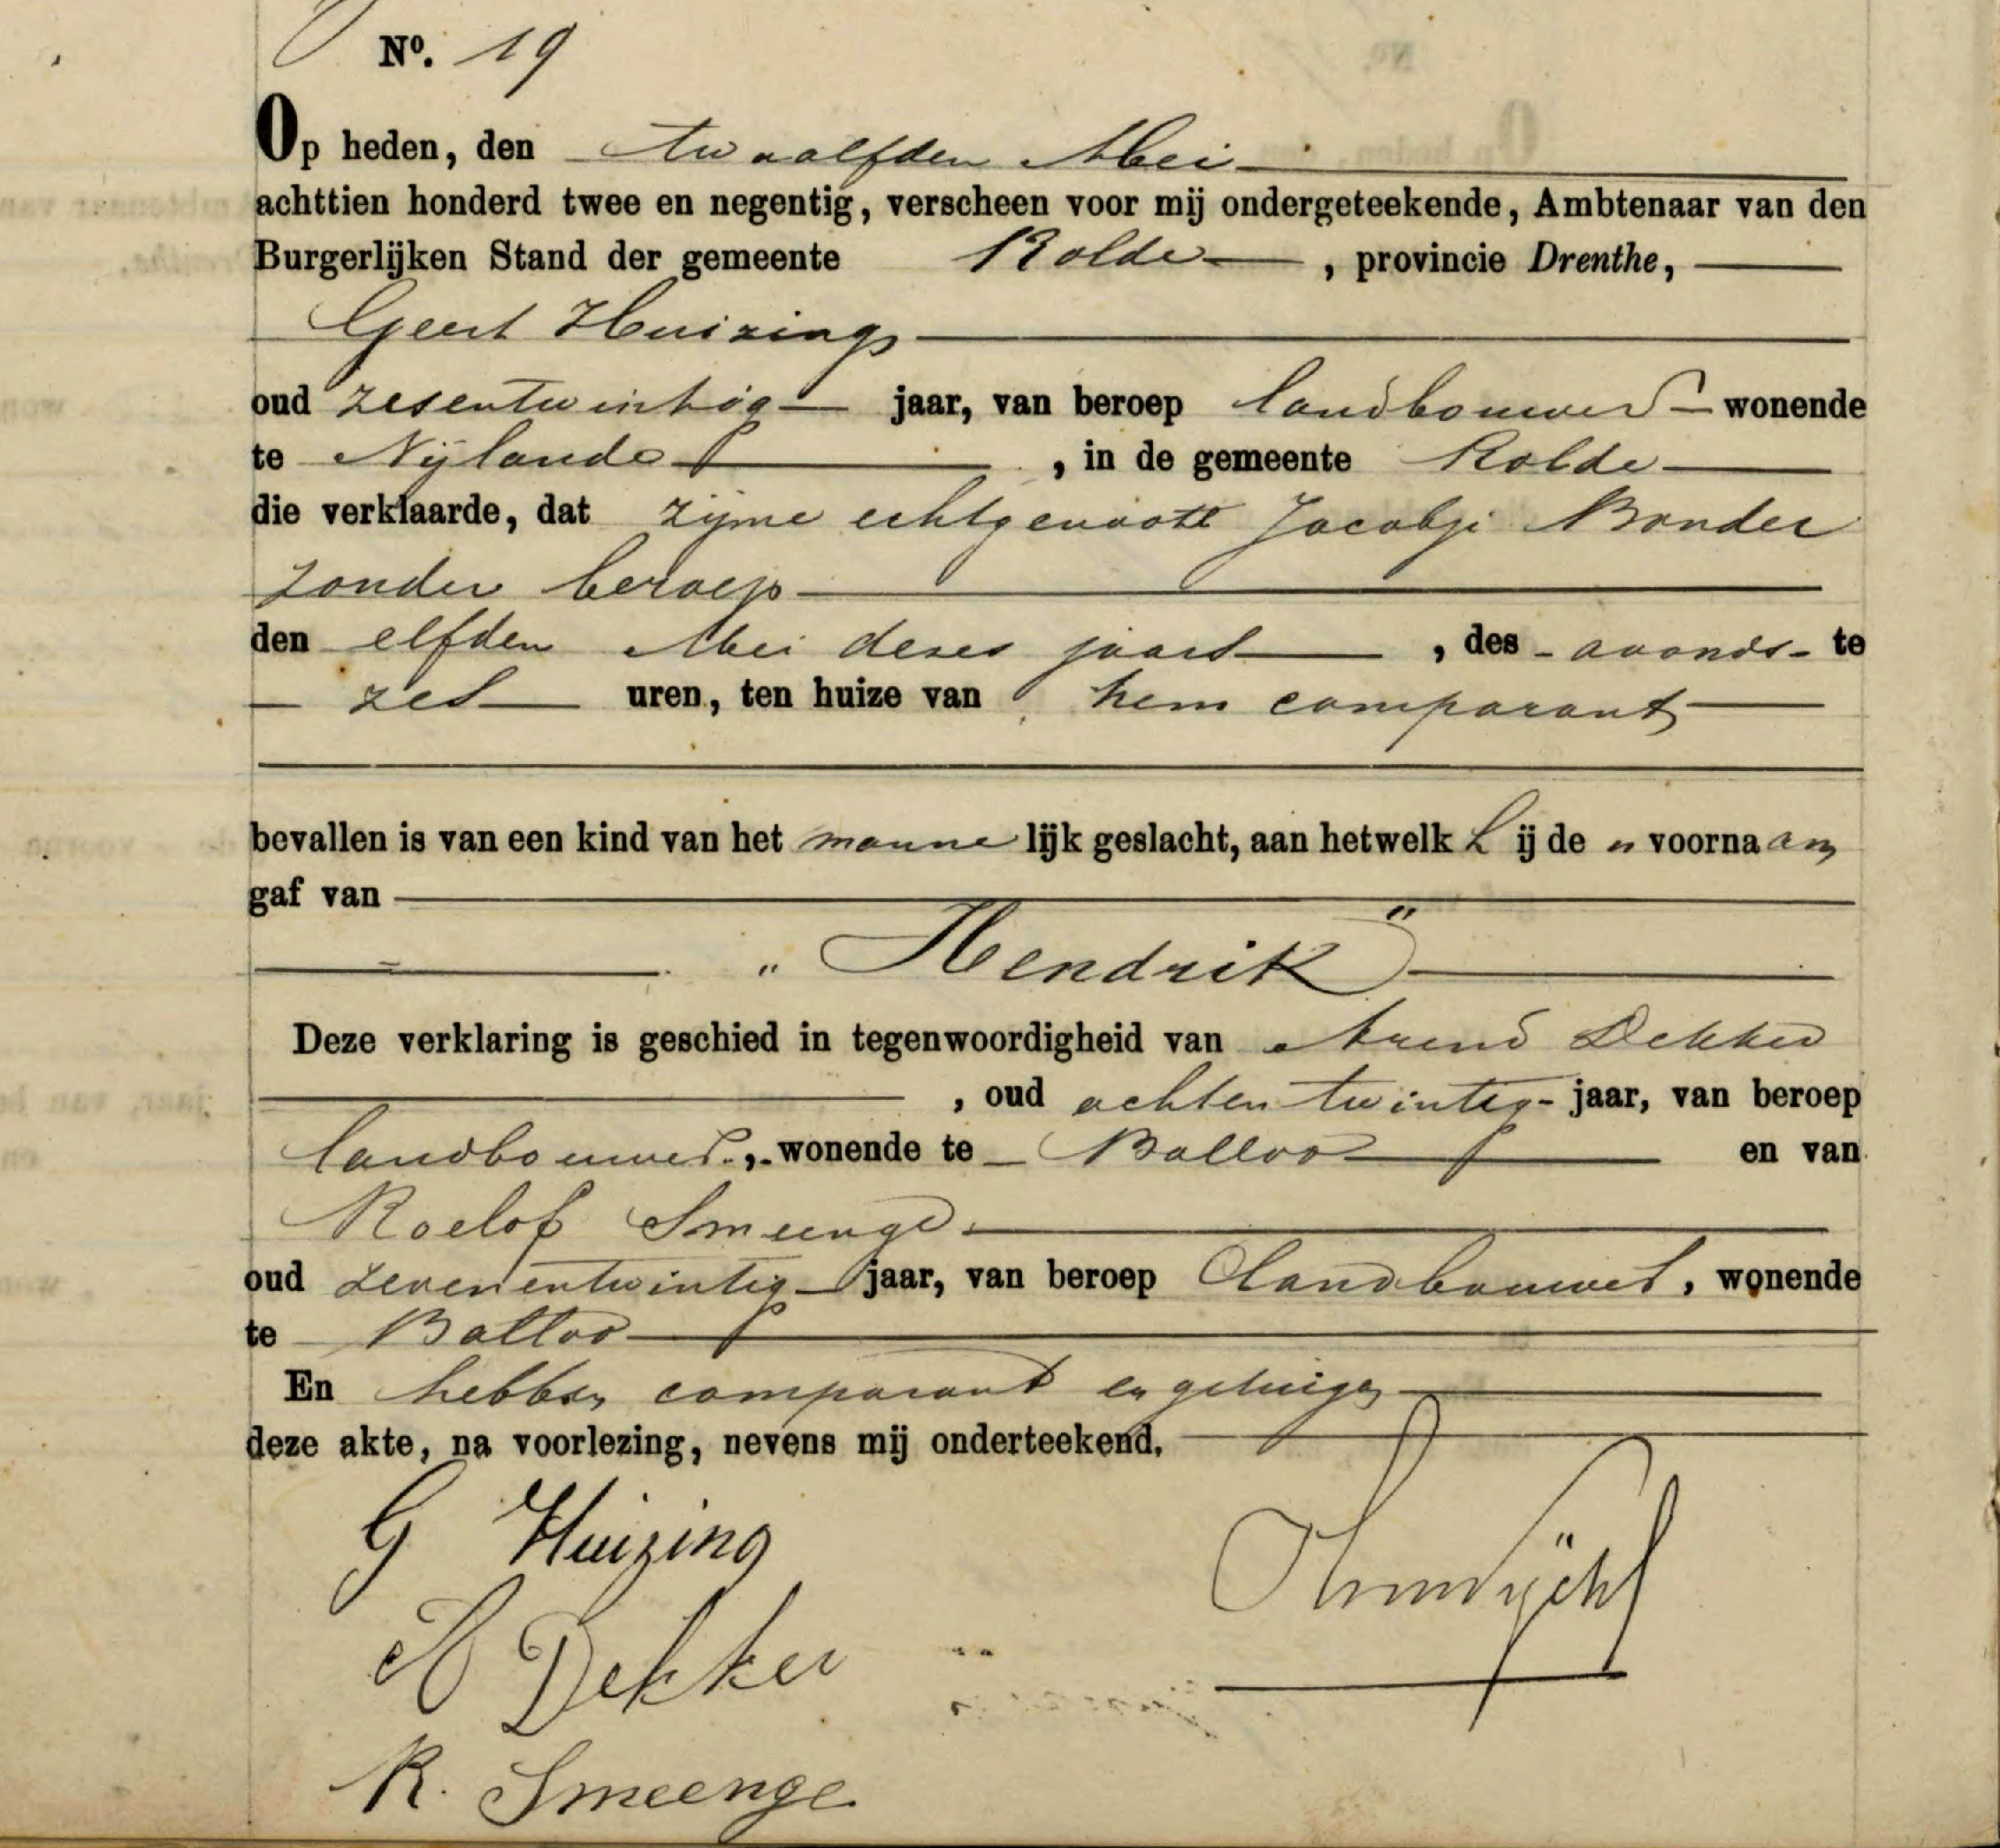 No. 19
Op heden, den twaalfden Mei
achttien honderd twee en negentig, verscheen voor mij ondergeteekende, Ambtenaar van den
Burgerlijken Stand der gemeente Rolde, provincie Drenthe,
Geert Huizing
oud zesentwintig jaar, van beroep landbouwer wonende
te Nijlande, in de gemeente Rolde
die verklaarde, dat zijne echtgenoote Jacobje Bonder
zonder beroep
den elfden Mei dezes jaars, des avonds te
zes uren, ten huize van hem comparant
bevallen is van een kind van het mannelijk geslacht, aan hetwelk hij de " voornaam
gaf van
"Hendrik"
Deze verklaring is geschied in tegenwoordigheid van Arend Dekker
, oud achtentwintig jaar, van beroep
landbouwer, wonende te Balloo en van
Roelof Smeenge
oud zevenentwintig jaar, van beroep landbouwer, wonende
te Balloo
En hebben comparant en getuigen
deze akte, na voorlezing, nevens mij onderteekend.
G Huizing
A Dekker
R. Smeenge